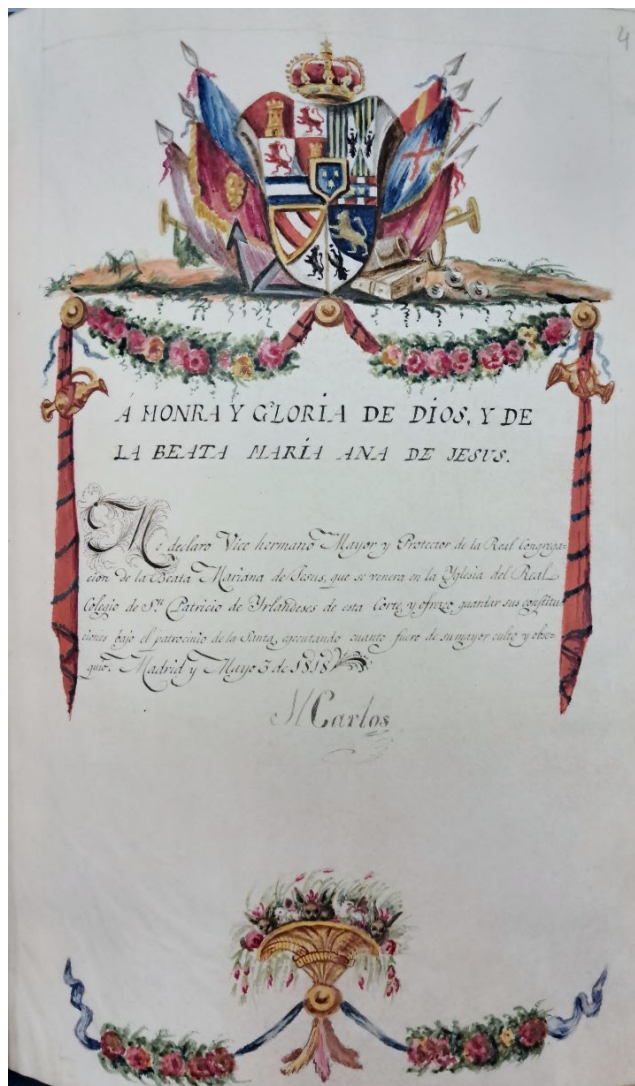 4
Á HONRA Y GLORIA DE DIOS, Y DE
LA BEATA MARÍA ANA DE JESUS.
Me declaro Vice hermano Mayor y Protector de la Real Congrega-
cion de la Beata Mariana de Jesus, que se venera en la Yglesia del Real
Colegio de Sn. Patricio de Yrlandeses de esta Corte, y ofrezco guardar sus constitu-
ciones bajo el patrocinio de la Santa, ejecutando cuanto fuere de su mayor culto y obse-
quio. Madrid y Mayo 3 de 1818
M Carlos